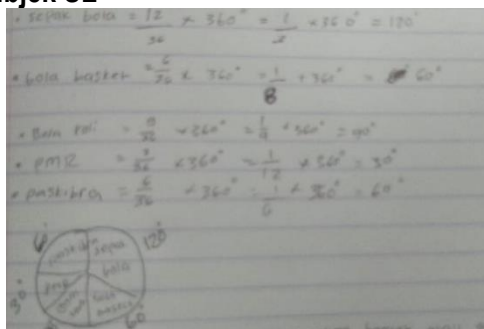 • sepak bola = 12/36 x 360° = 1/3 x 360° = 120°
• bola basket = 6/36 x 360° = 1/6 + 360° = 60°
• Bola voli = 9/36 x 360° = 1/4 x 360° = 90°
• PMR = 3/36 x 360° = 1/12 x 360° = 30°
• paskibra = 6/36 x 360° = 1/6 x 360° = 60°
60° paskibra sepak bola 120°
30° PMR
bola basket
60°